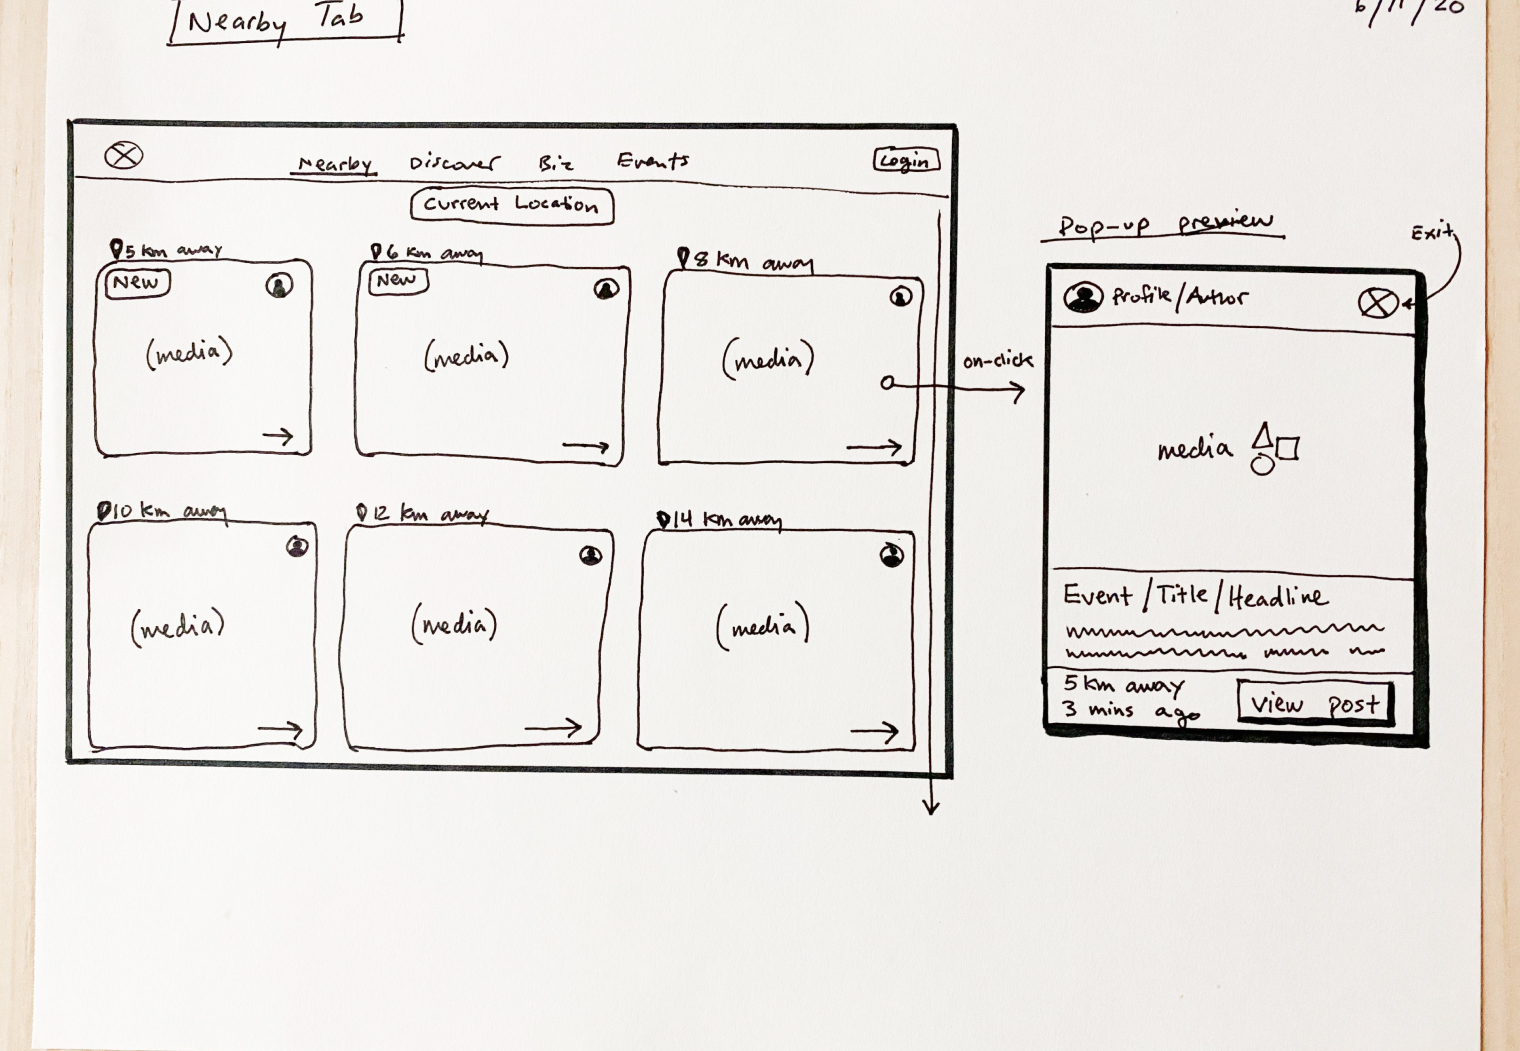 Nearby Tab
6/11/20
Nearby Discover Biz Events Login
Current Location
5 km away
6 km away
8 km away
New
New
(media)
(media)
(media)
10 km away
12 km away
14 km away
(media)
(media)
(media)
on-click
Pop-up preview
Exit
Profile/Author
media
Event/Title/Headline
5 km away
3 mins ago
view post